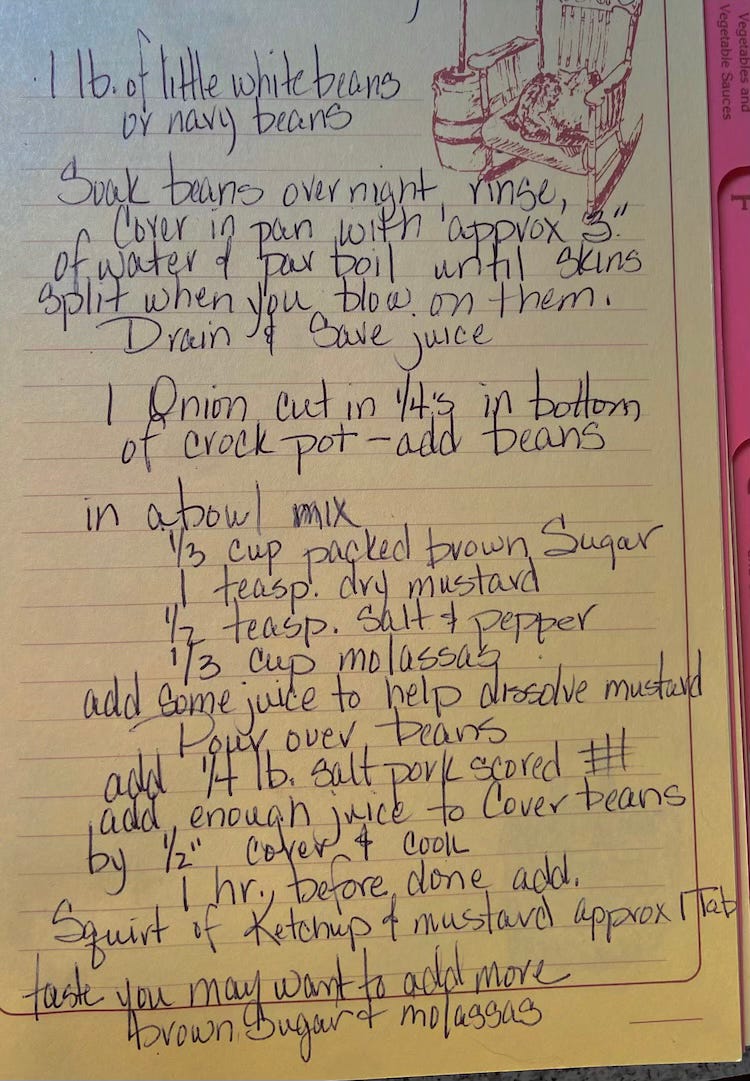 1 lb. of little white beans
or navy beans
Soak beans over night, rinse,
Cover in pan with approx 3"
of water & par boil until skins
split when you blow on them.
Drain & Save juice
1 Onion cut in 1/4's in bottom
of crock pot - add beans
in a bowl mix
1/3 cup packed brown Sugar
1 teasp. dry mustard
1/2 teasp. Salt & pepper
1/3 cup molassas
add some juice to help dissolve mustard
Pour over beans
add 1/4 lb. Salt pork scored #
add enough juice to Cover beans
by 1/2" cover & cook
1 hr. before done add.
Squirt of Ketchup & mustard approx 1 Tab
taste you may want to add more
brown Sugar & molassas
Vegetables and
Vegetable Sauces